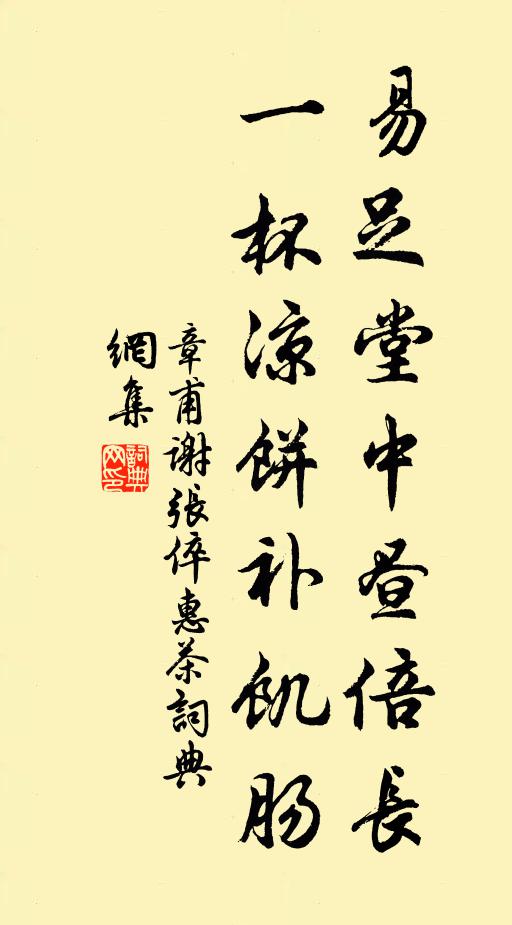 易足堂中昼倍長
一杯凉餅补飢肠
章甫谢張倅惠茶詞典
網集
詞典
网印